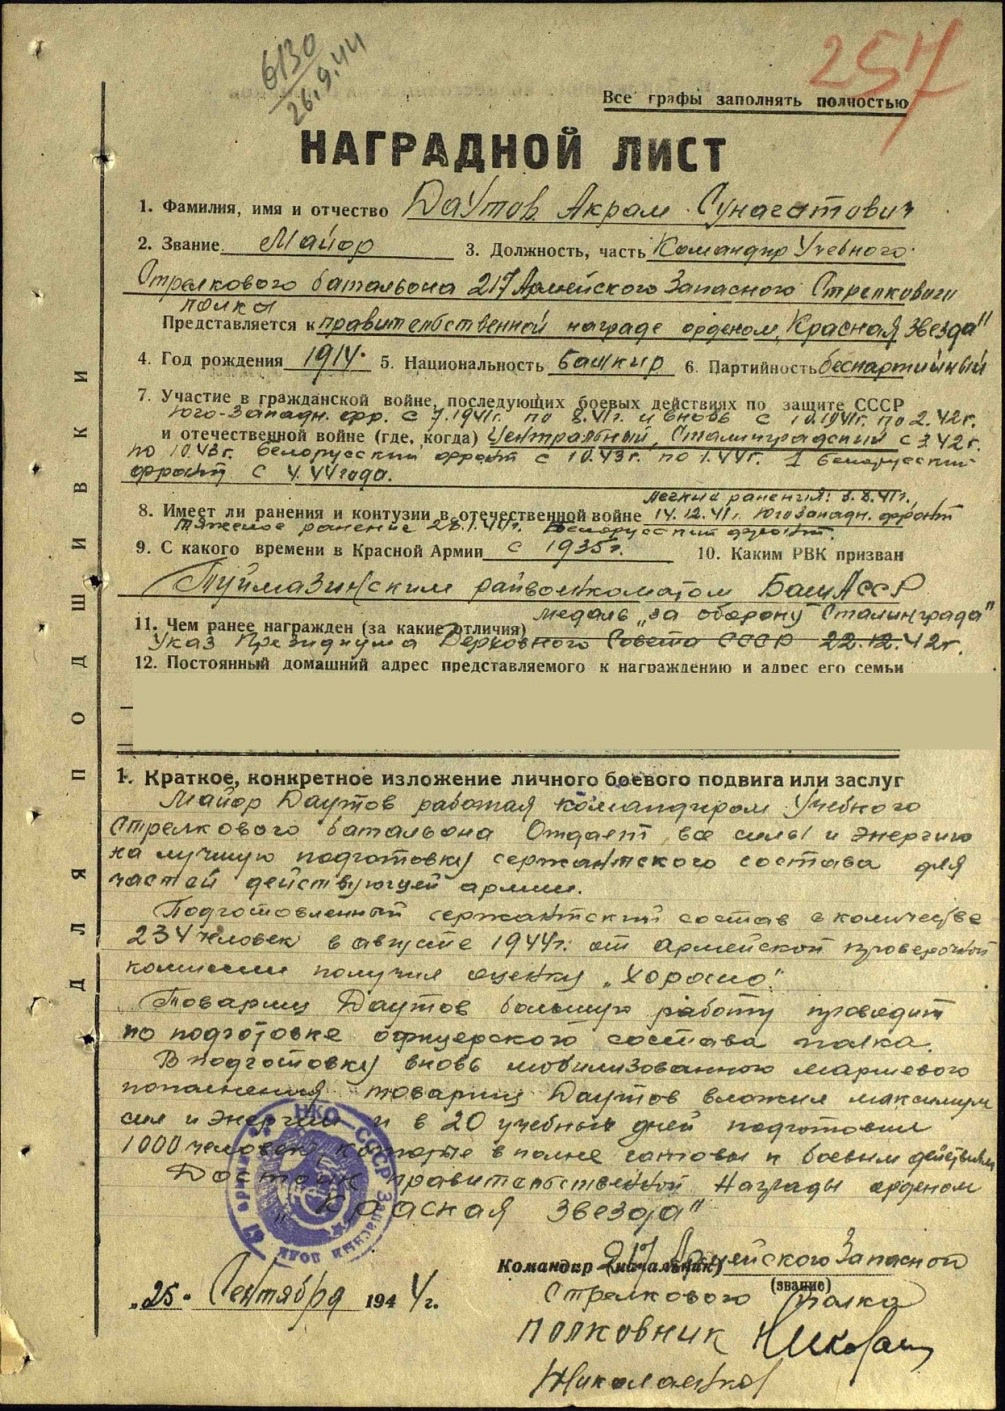 6130
26.9.44
257
Все графы заполнять полностью
НАГРАДНОЙ ЛИСТ
1. Фамилия, имя и отчество Даутов Акрам Сунагатович
2. Звание Майор 3. Должность, часть Командир Учебного
Стрелкового батальона 217 Армейского Запасного Стрелкового
полка
Представляется к правительственной награде орденом „Красная Звезда"
4. Год рождения 1914. 5. Национальность Башкир 6. Партийность беспартийный
7. Участие в гражданской войне, последующих боевых действиях по защите СССР
Юго-Западн. фр. с 7.1941г. по 8.41г. и вновь с 10.1941г. по 2.42г.
и отечественной войне (где, когда) Центральный, Сталинградский с 3.42г.
по 10.43г. Белорусский фронт с 10.43г. по 1.44г. 1 Белорусский
фронт с 4.44 года.
легкие ранения: 8.8.41г.,
8. Имеет ли ранения и контузии в отечественной войне 14.12.41г. Югозападн. фронт
тяжелое ранение 28.1.44г. Белорусский фронт.
9. С какого времени в Красной Армии с 1935г. 10. Каким РВК призван
Туймазинским райвоенкоматом БашАССР
медаль „за оборону Сталинграда"
11. Чем ранее награжден (за какие отличия)
Указ Президиума Верховного Совета СССР 22.12.42г.
12. Постоянный домашний адрес представляемого к награждению и адрес его семьи
ДЛЯ ПОДШИВКИ
1. Краткое, конкретное изложение личного боевого подвига или заслуг
Майор Даутов работая командиром Учебного
Стрелкового батальона Отдает все силы и энергию
на лучшую подготовку сержантского состава для
частей действующей армии.
Подготовленный сержантский состав в количестве
234 человек в августе 1944г. от армейской проверочной
комиссии получил оценку „Хорошо".
Товарищ Даутов большую работу проводит
по подготовке офицерского состава полка.
В подготовку вновь мобилизованного маршевого
пополнения товарищ Даутов вложил максимум
сил и энергии и в 20 учебных дней подготовил
1000 человек которые вполне готовы к боевым действиям
Достоин правительственной Награды орденом
„Красная Звезда"
НКО–СССР
Запасный
полк
Командир (начальник) 217 Армейского Запасного
(звание)
Стрелкового Полка
„25" Сентября 1944г.
ПОЛКОВНИК
Николаенков